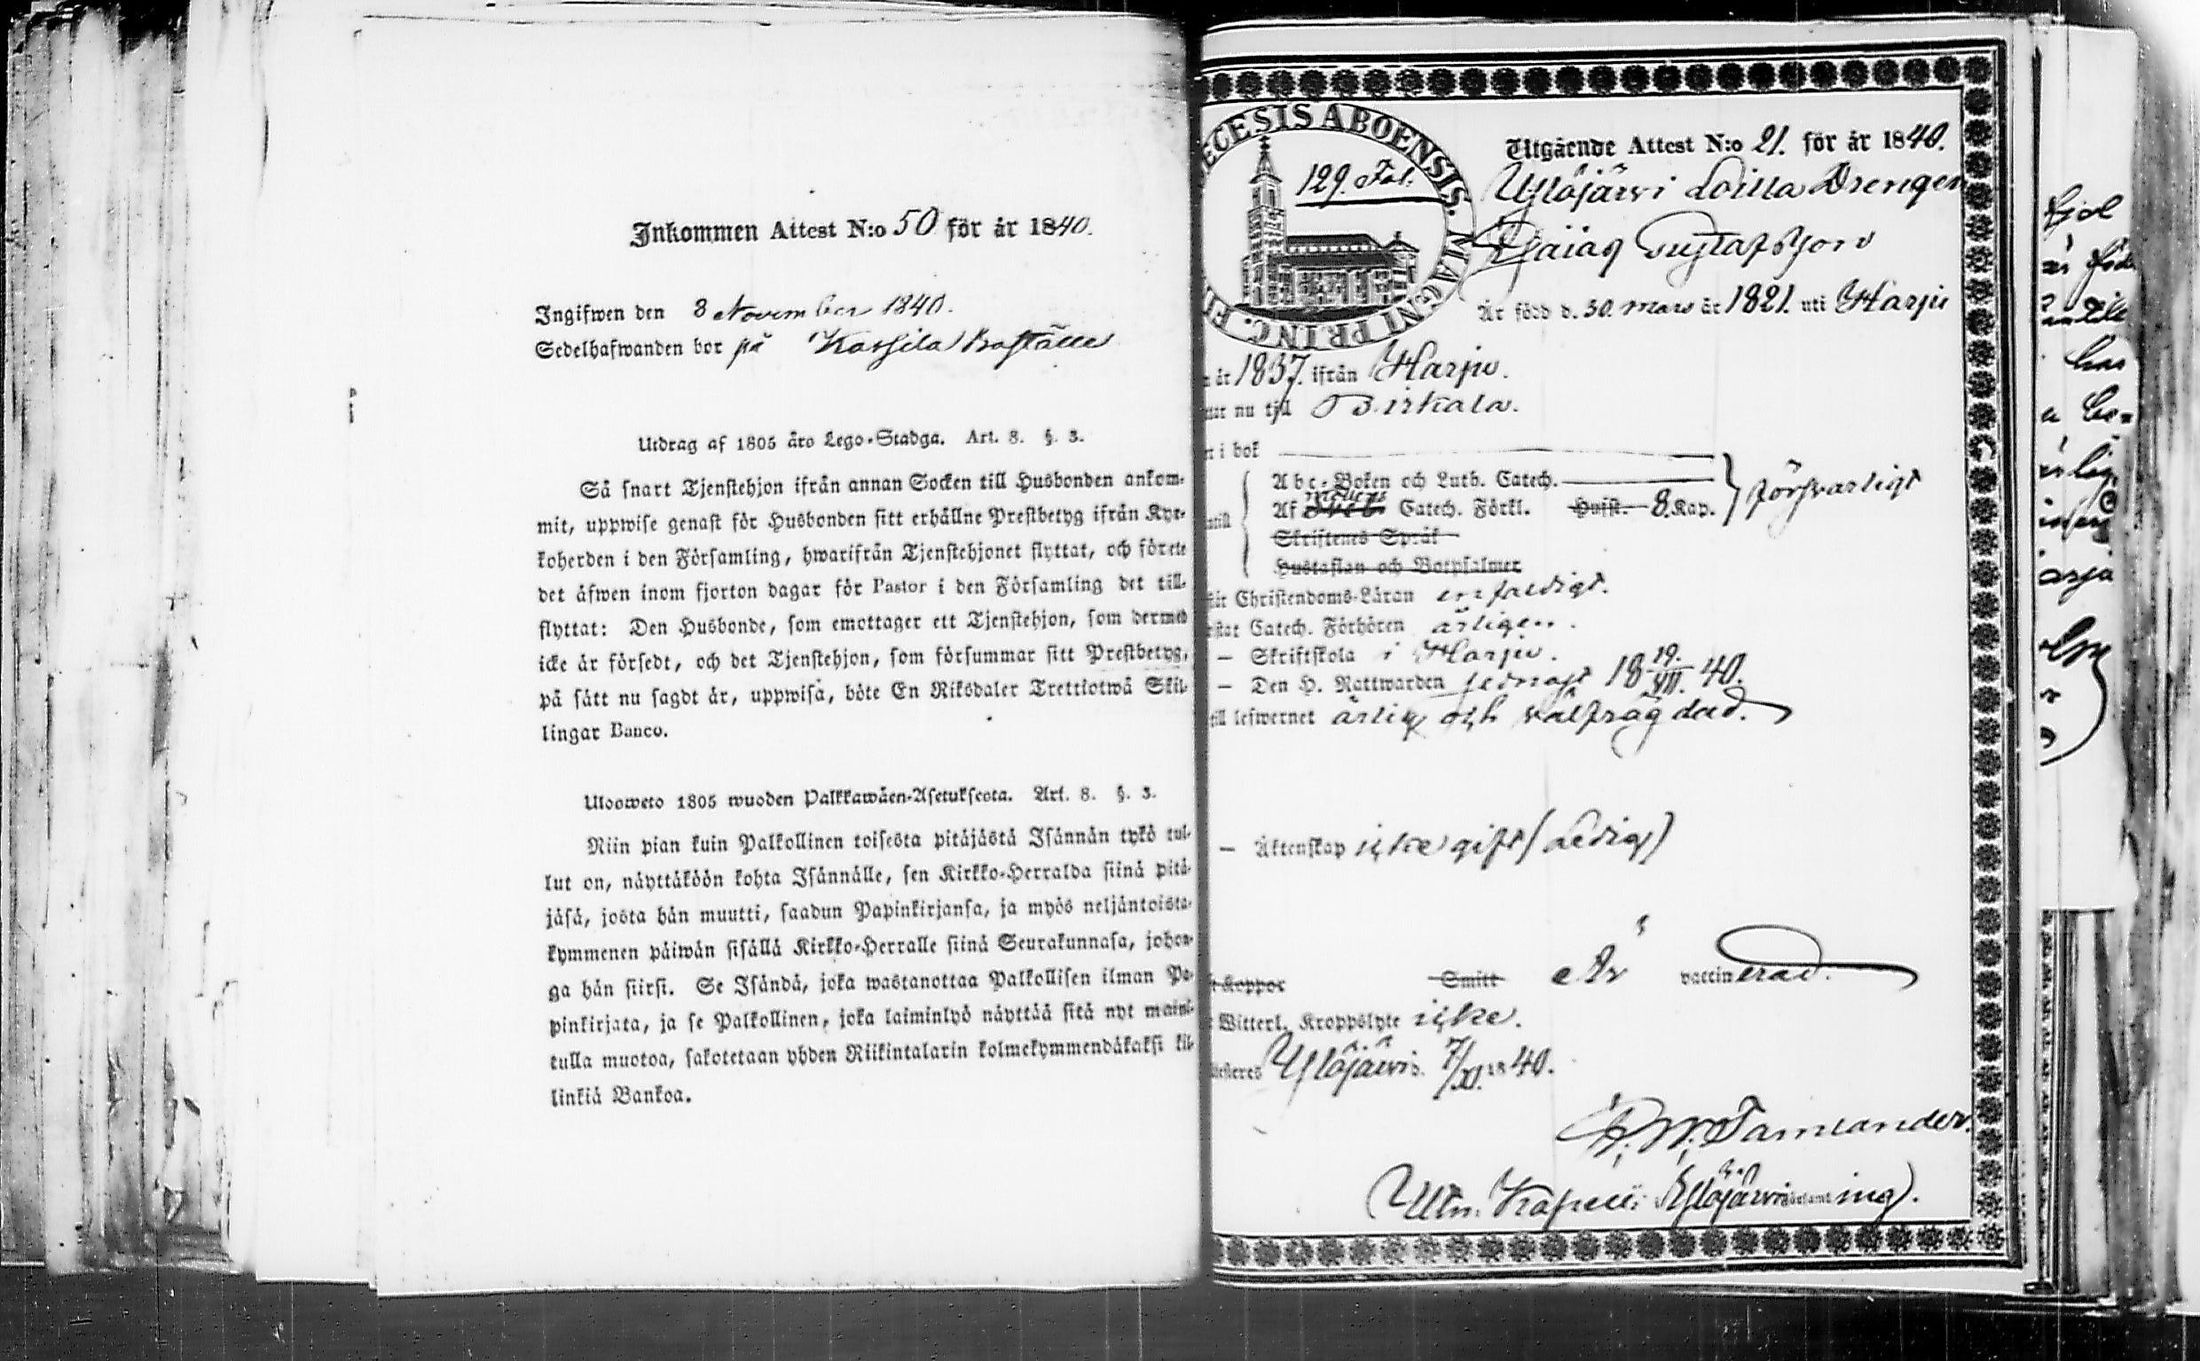 Inkommen Attest N:o 50 för år 1840.
Ingifwen den 8 November 1840.
Sedelhafwanden bor på
Utdrag af 1805 års Lego-Stadga. Art. 8. §. 3.
Så snart Tjenstehjon ifrån annan Socken till Husbonden ankom-
mit, uppwise genast för Husbonden sitt erhållne Prestbetyg ifrån Kyr-
koherden i den Församling, hwarifrån Tjenstehjonet flyttat, och förete
det äfwen inom fjorton dagar för Pastor i den Församling det till-
flyttat: Den Husbonde, som emottager ett Tjenstehjon, som dermed
icke är försedt, och det Tjenstehjon, som försummar sitt Prestbetyg,
på sätt nu sagdt är, uppwisa, böte En Riksdaler Trettiotwå Skil-
lingar Banco.
Ulosweto 1805 wuoden Palkkawäen-Asetuksesta. Art. 8. §. 3.
Niin pian kuin Palkollinen toisesta pitäjästä Isännän tykö tul-
lut on, näyttäköön kohta Isännälle, sen Kirkko-Herralda siinä pitä-
jäsä, josta hän muutti, saadun Papinkirjansa, ja myös neljäntoista-
kymmenen päiwän sisällä Kirkko-Herralle siinä Seurakunnasa, johon-
ga hän siirsi. Se Isändä, joka wastanottaa Palkollisen ilman Pa-
pinkirjata, ja se Palkollinen, joka laiminlyö näyttää sitä nyt maini-
tulla muotoa, sakotetaan yhden Riikintalarin kolmekymmendäkaksi kil-
linkiä Bankoa.
ECESIS ABOENSIS. MAGNI PRINC. FI
129. Fol.
Utgående Attest N:o 21. för år 1840.
Ylöjärwi Drengen
Esaias Gustafsson
Är född d. 30. mars år 1821. uti Harju
år 1837. ifrån Harju.
nu till Birkala.
i bok
Abc-Boken och Luth. Catech.
Af Catech. Förkl. Husft. 8. Kap. försvarligt
Skriftenes Språk
Hustaflan och Botpsalmer
Christendoms-Läran enfaldigt.
Catech. Förhören årligen.
– Skriftskola i Harju.
– Den H. Nattwarden sednast 18 19./VII. 40.
till lefwernet ärlig och välfrägdad.
– Äktenskap icke gift (Ledig)
Koppor Smitt Är vaccinerad.
Witterl. Kroppslyte icke.
Ylöjärwi d. 7/XI. 1840.
Kapell: Ylöjärwi